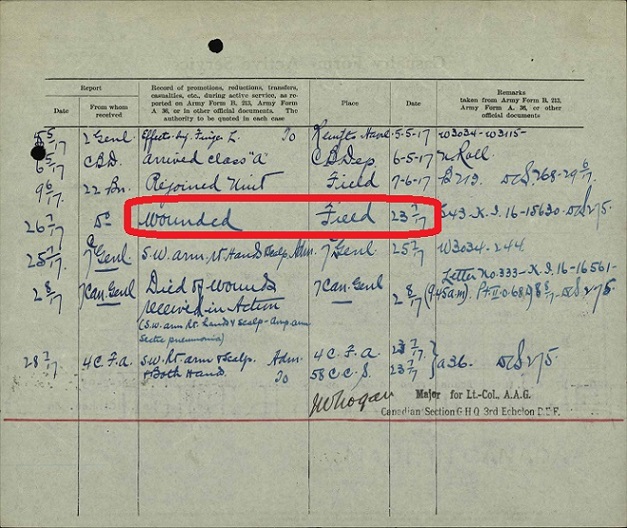 Report
Record of promotions, reductions, transfers,
casualties, etc., during active service, as re-
ported on Army Form B, 213, Army Form
A 36, or in other official documents. The
authority to be quoted in each case
Place
Date
Remarks
taken from Army Form B. 213,
Army Form A, 36, or other
official documents
Date
From whom
received
5/5/17 2 Genl. To 5-5-17 W3034-W3115-
6/5/17 C.B.D. arrived class "A" C.B.Dep. 6-5-17 N Roll.
9/6/17 22 Bn. Rejoined Unit Field 7-6-17 B213.
26/7/17 Do Wounded Field 23/7/17 K.I. 16-15630- DCS 275.
25/7/17 7 Genl S.W. arm, rt Hand & Scalp, Adm. 7 Genl. 25/7/17 W3034-244
Letter No. 333-K.I. 16-16561-
2/8/17 7 Can. Genl Died of wounds 7 Can. Genl 2/8/17 (9.45 a.m.) DCS 275
received in Action
(S.W. arm rt. hand & scalp - amp. arm
Septic pneumonia)
28/7/17 4 C.F.A. S.W. rt arm & scalp. Adm. 4 C.F.A. 23/7/17 A36. DCS 275.
& Both Hands To 58 C.C.S. 23/7/17
Major for Lt.-Col., A.A.G.
Canadian Section G H Q 3rd Echelon B.E.F.